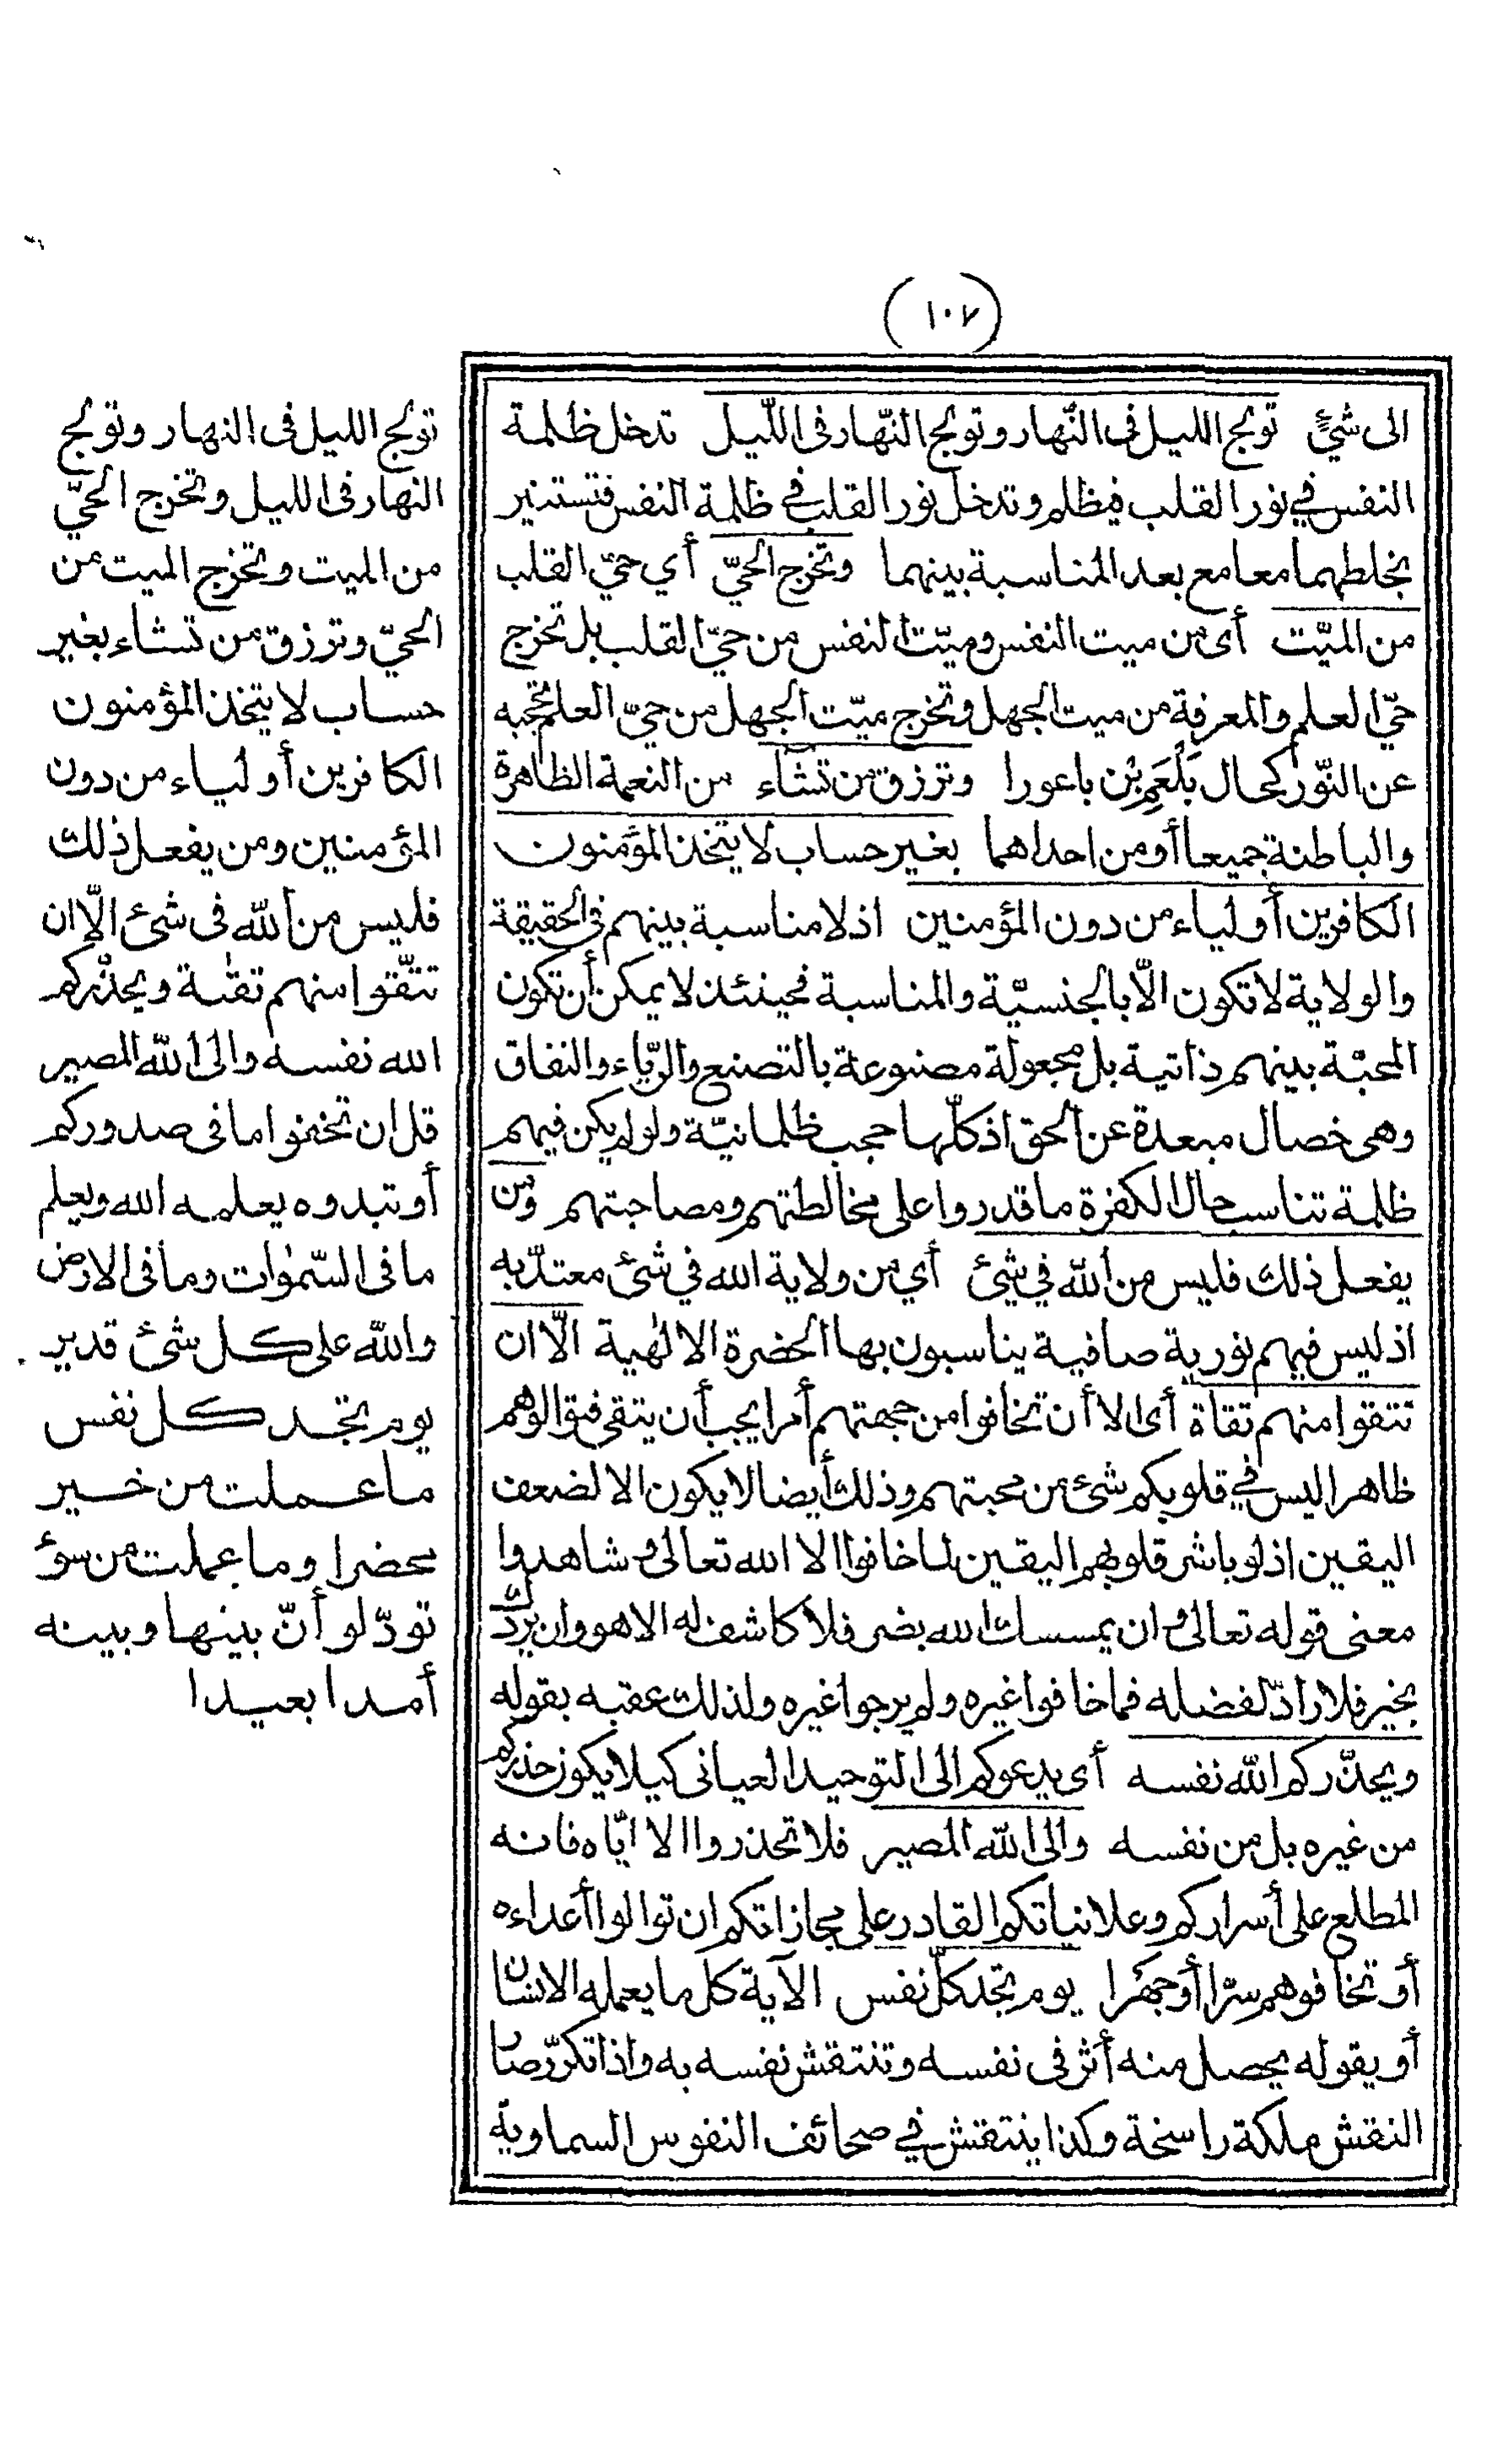 (١٠٧)
الى شئٍ تولج الليل فى النّهار وتولج النّهار فى اللّيل تدخل ظلمة
النفس في نور القلب فيظلم وتدخل نور القلب في ظلمة النفس فتستنير
بخلطهما معا مع بعد المناسبة بينهما وتخرج الحيّ أي حيّ القلب
من الميّت أى من ميت النفس وميّت النفس من حيّ القلب بل تخرج
حيّ العلم والمعرفة من ميت الجهل وتخرج ميّت الجهل من حيّ العلم تحجبه
عن النّور كحال بَلْعَمِ بْن باعورا وترزق من تشآء من النعمة الظاهرة
والباطنة جميعا أو من احداهما بغير حساب لا يتخذ المؤمنون
الكافرين أولياء من دون المؤمنين اذ لا مناسبة بينهم فى الحقيقة
والولاية لا تكون الّا بالجنسيّة والمناسبة فحينئذ لا يمكن أن تكون
المحبّة بينهم ذاتية بل مجعولة مصنوعة بالتصنع والرّياء والنفاق
وهى خصال مبعدة عن الحق اذ كلّها حجب ظلمانيّة ولو لم يكن فيهم
ظلمة تناسب حال الكفرة ما قدروا على مخالطتهم ومصاحبتهم ومن
يفعل ذلك فليس من اللّه في شئ أي من ولاية الله في شئ معتدّ به
اذ ليس فيهم نورية صافية يناسبون بها الحضرة الالٰهية الّا ان
تتقوا منهم تقاة أى الا أن تخافوا من جهتهم أمرا يجب أن يتقى فتوالوهم
ظاهرا ليس في قلوبكم شئ من محبتهم وذلك أيضا لا يكون الا لضعف
اليقين اذ لو باشر قلوبهم اليقين لما خافوا الا الله تعالى وشاهدوا
معنى قوله تعالى وان يمسسك الله بضر فلا كاشف له الا هو وان يردك
بخير فلا رادّ لفضله فما خافوا غيره ولم يرجوا غيره ولذلك عقبه بقوله
ويحذّركم اللّه نفسه أى يدعوكم الى التوحيد العيانى كيلا يكون حذركم
من غيره بل من نفسه والى اللّه المصير فلا تحذروا الا ايّاه فانه
المطلع على أسراركم وعلانياتكم القادر على مجازاتكم ان توالوا أعداءه
أو تخافوهم سرّا أو جهرا يوم تجد كلّ نفس الآية كل ما يعمله الانسان
أو يقوله يحصل منه أثر فى نفسه وتنتقش نفسه به واذا تكرّر صار
النقش ملكة راسخة وكذا ينتقش في صحائف النفوس السماوية
تولج الليل فى النهار وتولج
النهار فى الليل وتخرج الحيّ
من الميت وتخرج الميت من
الحيّ وترزق من تشاء بغير
حساب لا يتخذ المؤمنون
الكافرين أولياء من دون
المؤمنين ومن يفعل ذلك
فليس من اللّه فى شئ الّا ان
تتّقوا منهم تقٰية ويحذّركم
الله نفسه والى اللّه المصير
قل ان تخفوا ما فى صدوركم
أو تبدوه يعلمه الله ويعلم
ما فى السّمٰوات وما فى الارض
واللّه على كل شئ قدير
يوم تجد كل نفس
ما عملت من خير
محضرا وما عملت من سوء
تودّ لو أنّ بينها وبينه
أمدا بعيدا